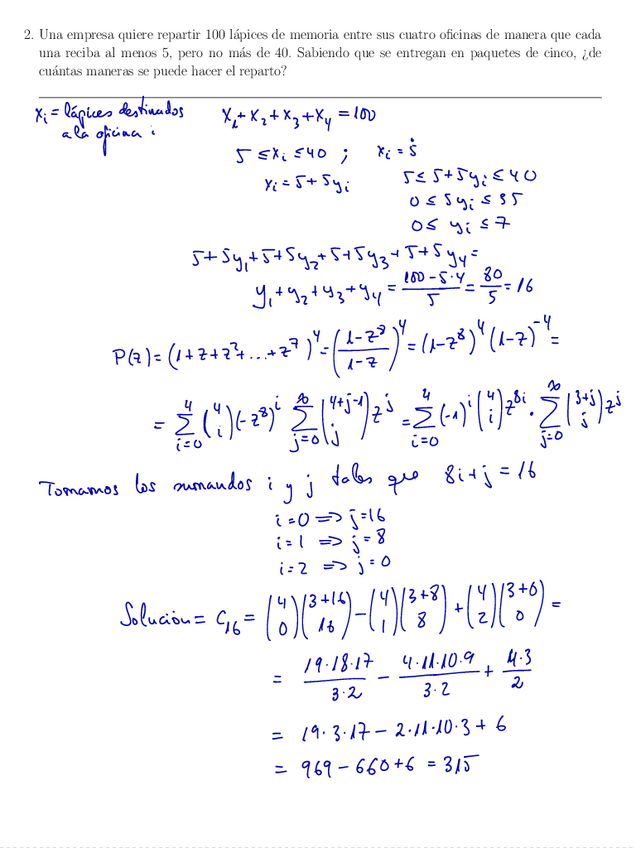 2. Una empresa quiere repartir 100 lápices de memoria entre sus cuatro oficinas de manera que cada
una reciba al menos 5, pero no más de 40. Sabiendo que se entregan en paquetes de cinco, ¿de
cuántas maneras se puede hacer el reparto?
x_i = lápices destinados
a la oficina i
x_1 + x_2 + x_3 + x_4 = 100
5 ≤ x_i ≤ 40 ; x_i = 5̇
x_i = 5 + 5y_i
5 ≤ 5 + 5y_i ≤ 40
0 ≤ 5y_i ≤ 35
0 ≤ y_i ≤ 7
5 + 5y_1 + 5 + 5y_2 + 5 + 5y_3 + 5 + 5y_4 =
y_1 + y_2 + y_3 + y_4 = (100 - 5·4)/5 = 80/5 = 16
P(z) = (1 + z + z^2 + ... + z^7)^4 = ((1 - z^8)/(1 - z))^4 = (1 - z^8)^4 (1 - z)^{-4} =
= \sum_{i=0}^{4} \binom{4}{i} (-z^8)^i \sum_{j=0}^{∞} \binom{4+j-1}{j} z^j = \sum_{i=0}^{4} (-1)^i \binom{4}{i} z^{8i} · \sum_{j=0}^{∞} \binom{3+j}{j} z^j
Tomamos los sumandos i y j tales que 8i + j = 16
i = 0 ⟹ j = 16
i = 1 ⟹ j = 8
i = 2 ⟹ j = 0
Solución = C_16 = \binom{4}{0} \binom{3+16}{16} - \binom{4}{1} \binom{3+8}{8} + \binom{4}{2} \binom{3+0}{0} =
= (19·18·17)/(3·2) - (4·11·10·9)/(3·2) + (4·3)/2
= 19·3·17 - 2·11·10·3 + 6
= 969 - 660 + 6 = 315